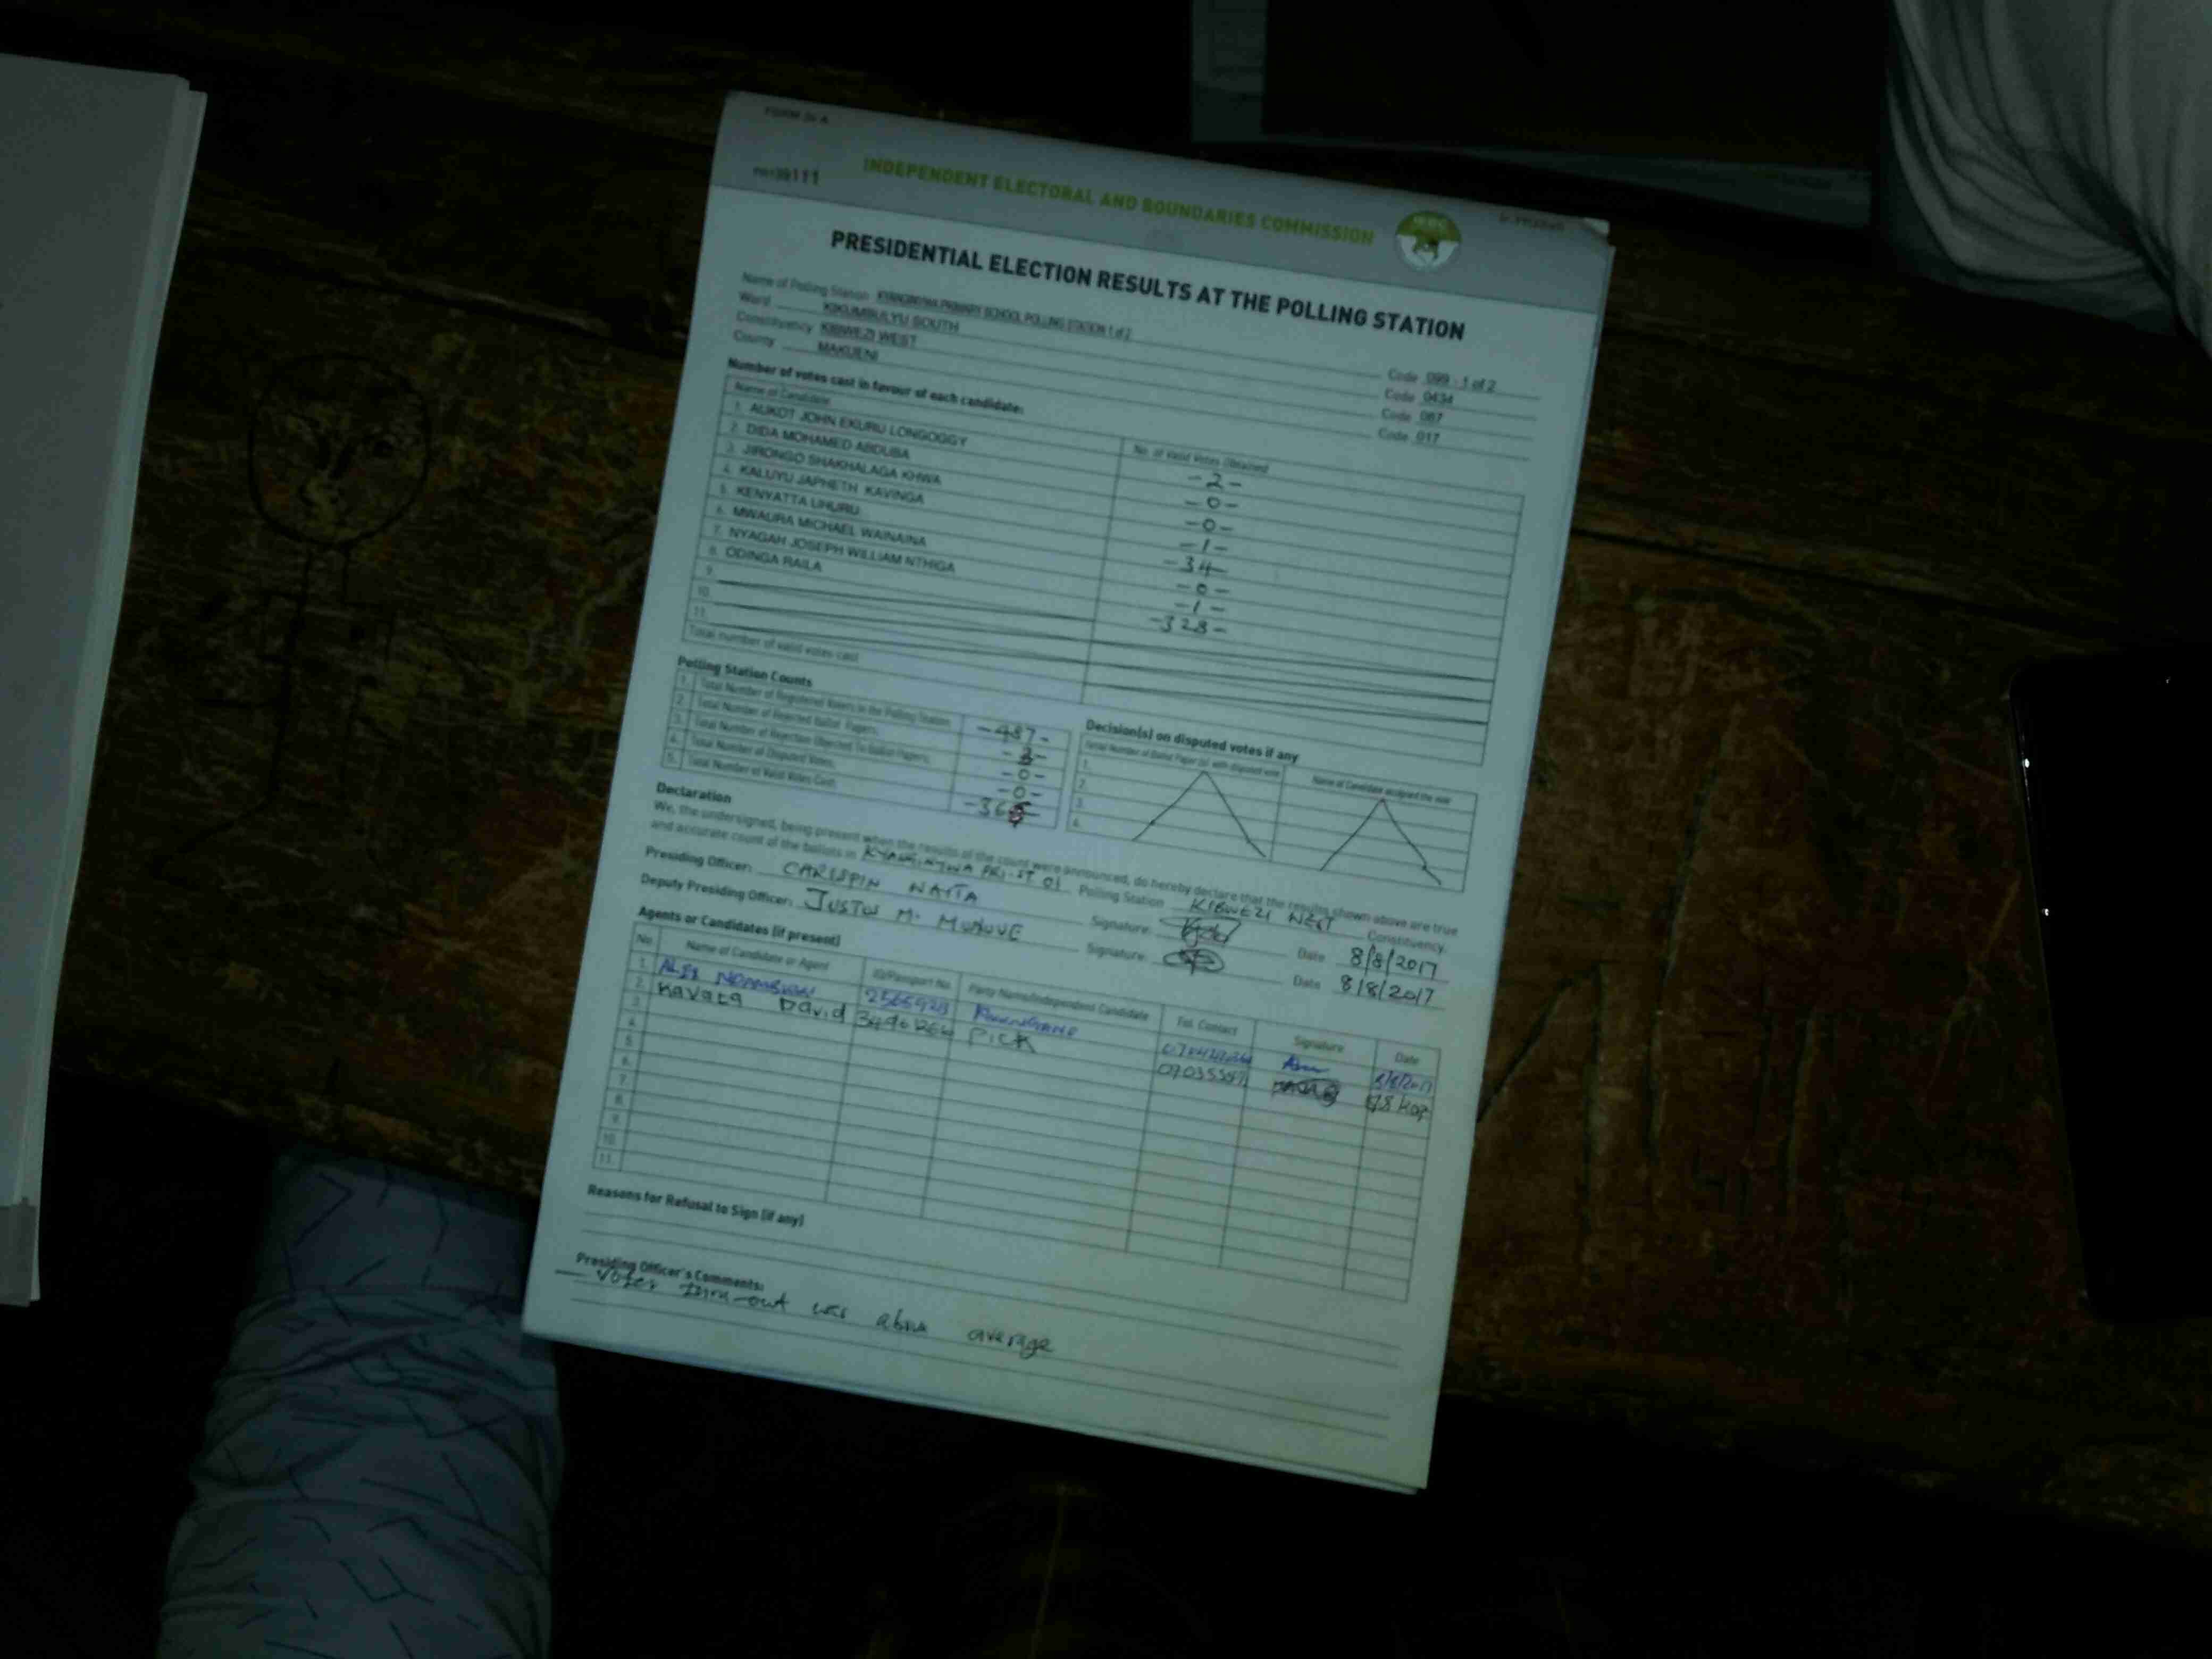 FORM 34 A
INDEPENDENT ELECTORAL AND BOUNDARIES COMMISSION
IEBC
PRESIDENTIAL ELECTION RESULTS AT THE POLLING STATION
Name of Polling Station PRIMARY SCHOOL POLLING STATION 1 of 2 Code 099 - 1 of 2
Ward KIKUMBULYU SOUTH Code 0434
Constituency KIBWEZI WEST Code 087
County MAKUENI Code 017
Number of votes cast in favour of each candidate:
Name of Candidate No. of Valid Votes Obtained
1. AUKOT JOHN EKURU LONGOGGY -2-
2. DIDA MOHAMED ABDUBA -0-
3. JIRONGO SHAKHALAGA KHWA -0-
4. KALUYU JAPHETH KAVINGA -1-
5. KENYATTA UHURU -34-
6. MWAURA MICHAEL WAINAINA -0-
7. NYAGAH JOSEPH WILLIAM NTHIGA -1-
8. ODINGA RAILA -328-
9.
10.
11.
Total number of valid votes cast
Polling Station Counts
1. Total Number of Registered Voters in the Polling Station -487-
2. Total Number of Rejected Ballot Papers
3. Total Number of Rejection Objected To Ballot Papers -0-
4. Total Number of Disputed Votes -0-
5. Total Number of Valid Votes Cast
Decision(s) on disputed votes if any
Total Number of Ballot Paper (s) with disputed vote Name of Candidate assigned the vote
1.
2.
3.
4.
Declaration
We, the undersigned, being present when the results of the count were announced, do hereby declare that the results shown above are true
and accurate count of the ballots in PRI-ST 01 Polling Station KIBWEZI WEST Constituency.
Presiding Officer: NAITA Signature: Date 8/8/2017
Deputy Presiding Officer: JUSTUS M. Signature: Date 8/8/2017
Agents or Candidates (if present)
No. Name of Candidate or Agent ID/Passport No. Party Name/Independent Candidate Tel. Contact Signature Date
1.
2. Kavata David PICK
3.
4.
5.
6.
7.
8.
9.
10.
11.
Reasons for Refusal to Sign (if any)
Presiding Officer's Comments:
Voter turn-out was above average